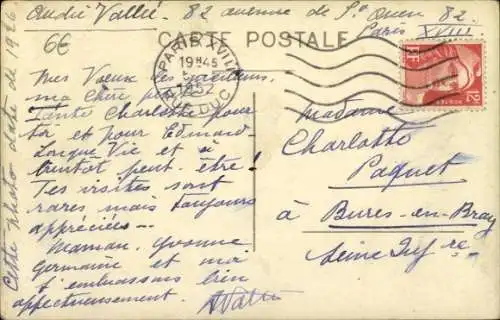 André Vallié - 82 avenue de St Ouen 82.
Paris XVIII
6€
CARTE POSTALE
PARIS XVIII
19H45
1952
R. DUC
RF
12F
Mes Vœux des meilleurs,
ma chère petite
Tante Charlotte pour
toi et pour Edmond
Longue Vie et à
bientôt peut-être !
Tes visites sont
rares mais toujours
appréciées -
Maman, Yvonne
Germaine et moi
t'embrassons bien
affectueusement.
AVallié
Cette photo date de 1926
Madame
Charlotte
Paquet
à Bures-en-Bray
Seine Infre